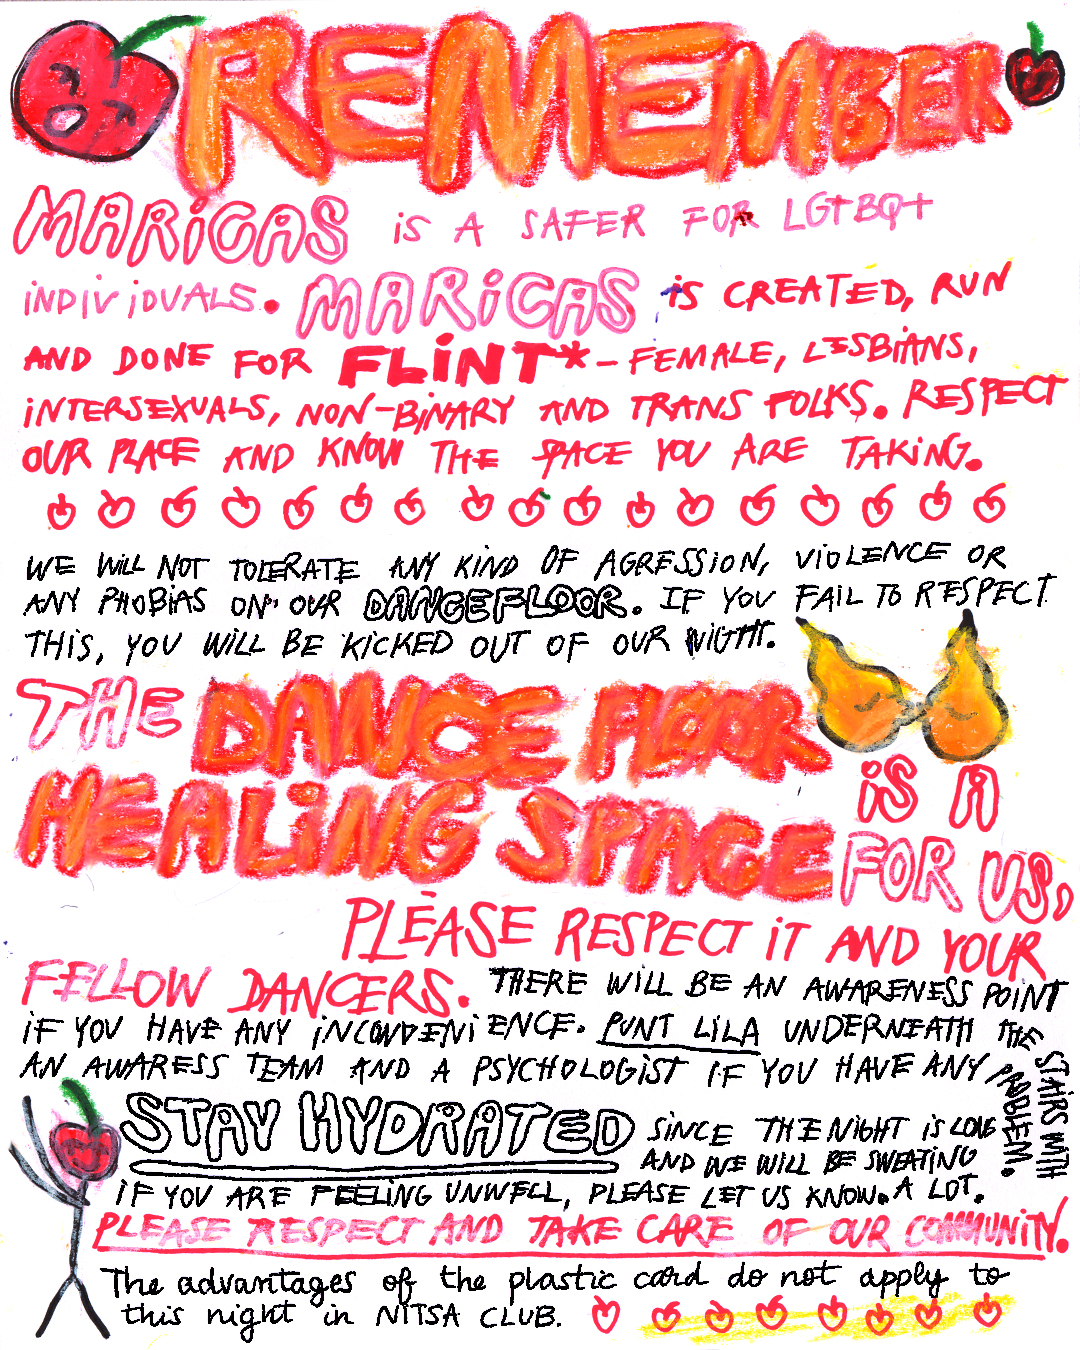 REMEMBER
MARiCAS iS A SAFER FOR LGTBQ+
iNDiViDUALS. MARiCAS iS CREATED, RUN
AND DONE FOR FLiNT* - FEMALE, LESBiANS,
iNTERSEXUALS, NON-BiNARY AND TRANS FOLKS. RESPECT
OUR PLACE AND KNOW THE SPACE YOU ARE TAKiNG.
WE WiLL NOT TOLERATE ANY KiND OF AGRESSiON, ViOLENCE OR
ANY PHOBiAS ON OUR DANCEFLOOR. IF YOU FAiL TO RESPECT
THiS, YOU WiLL BE KiCKED OUT OF OUR NiGTH.
THE DANCE FLOOR
iS A
HEALiNG SPACE
FOR US,
PLEASE RESPECT iT AND YOUR
FELLOW DANCERS. THERE WiLL BE AN AWARENESS POiNT
iF YOU HAVE ANY iNCONDENiENCE. PUNT LiLA UNDERNEATH THE STAiRS WiTH
AN AWARESS TEAM AND A PSYCHOLOGiST iF YOU HAVE ANY PROBLEM.
STAY HYDRATED SiNCE THE NiGHT iS LONG
AND WE WiLL BE SWEATiNG
A LOT.
iF YOU ARE FEELiNG UNWELL, PLEASE LET US KNOW.
PLEASE RESPECT AND TAKE CARE OF OUR COMMUNiTY.
The advantages of the plastic card do not apply to
this night in NITSA CLUB.